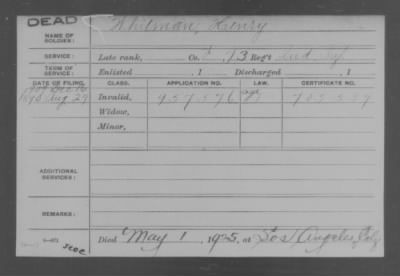 DEAD
Whitman, Henry
NAME OF SOLDIER:
SERVICE: Late rank, Co. 73 Reg't Ind Inf
TERM OF SERVICE: Enlisted , 1 Discharged , 1
DATE OF FILING. CLASS. APPLICATION NO. LAW. CERTIFICATE NO.
Aug 29 Invalid, 957576
Widow,
Minor,
ADDITIONAL SERVICES:
REMARKS:
Died May 1, 1925, at Los Angeles Calif